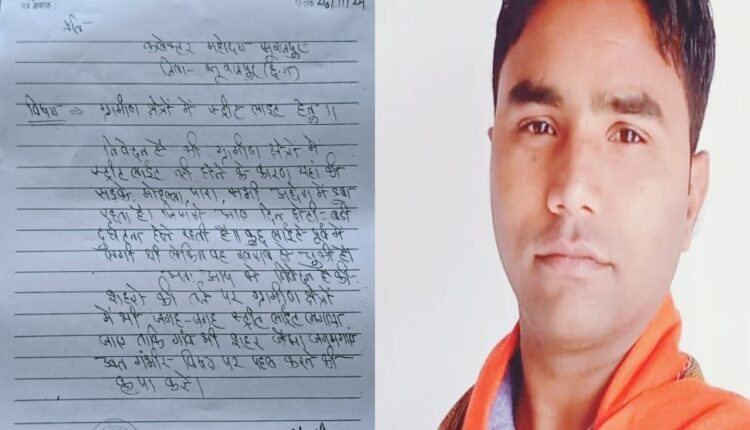 पत्र क्रमांक : दिनांक 26/11/24
प्रति-
कलेक्टर महोदय सूरजपुर
जिला- सूरजपुर (छ.ग.)
विषय ⇒ ग्रामीण क्षेत्रों में स्ट्रीट लाइट हेतु।।
निवेदन है की ग्रामीण क्षेत्रों में
स्ट्रीट लाईट नही होने के कारण यहां की
सड़के मोहल्ला, पारा, सभी अंधेरा में डूबा
रहता है। जिससे आए दिन छोटी-बड़ी
दुर्घटना होते रहती है। कुछ लाईटे पूर्व में
लगाये थे लेकिन वह खराब हो चुकी है।
अतः आप से निवेदन है की-
शहरो की तर्ज पर ग्रामीण क्षेत्रों
में भी जगह-जगह स्ट्रीट लाईट लगाया
जाए ताकि गांव भी शहर जैसा जगमगाए
उक्त गंभीर विषय पर पहल करने की
कृपा करें।